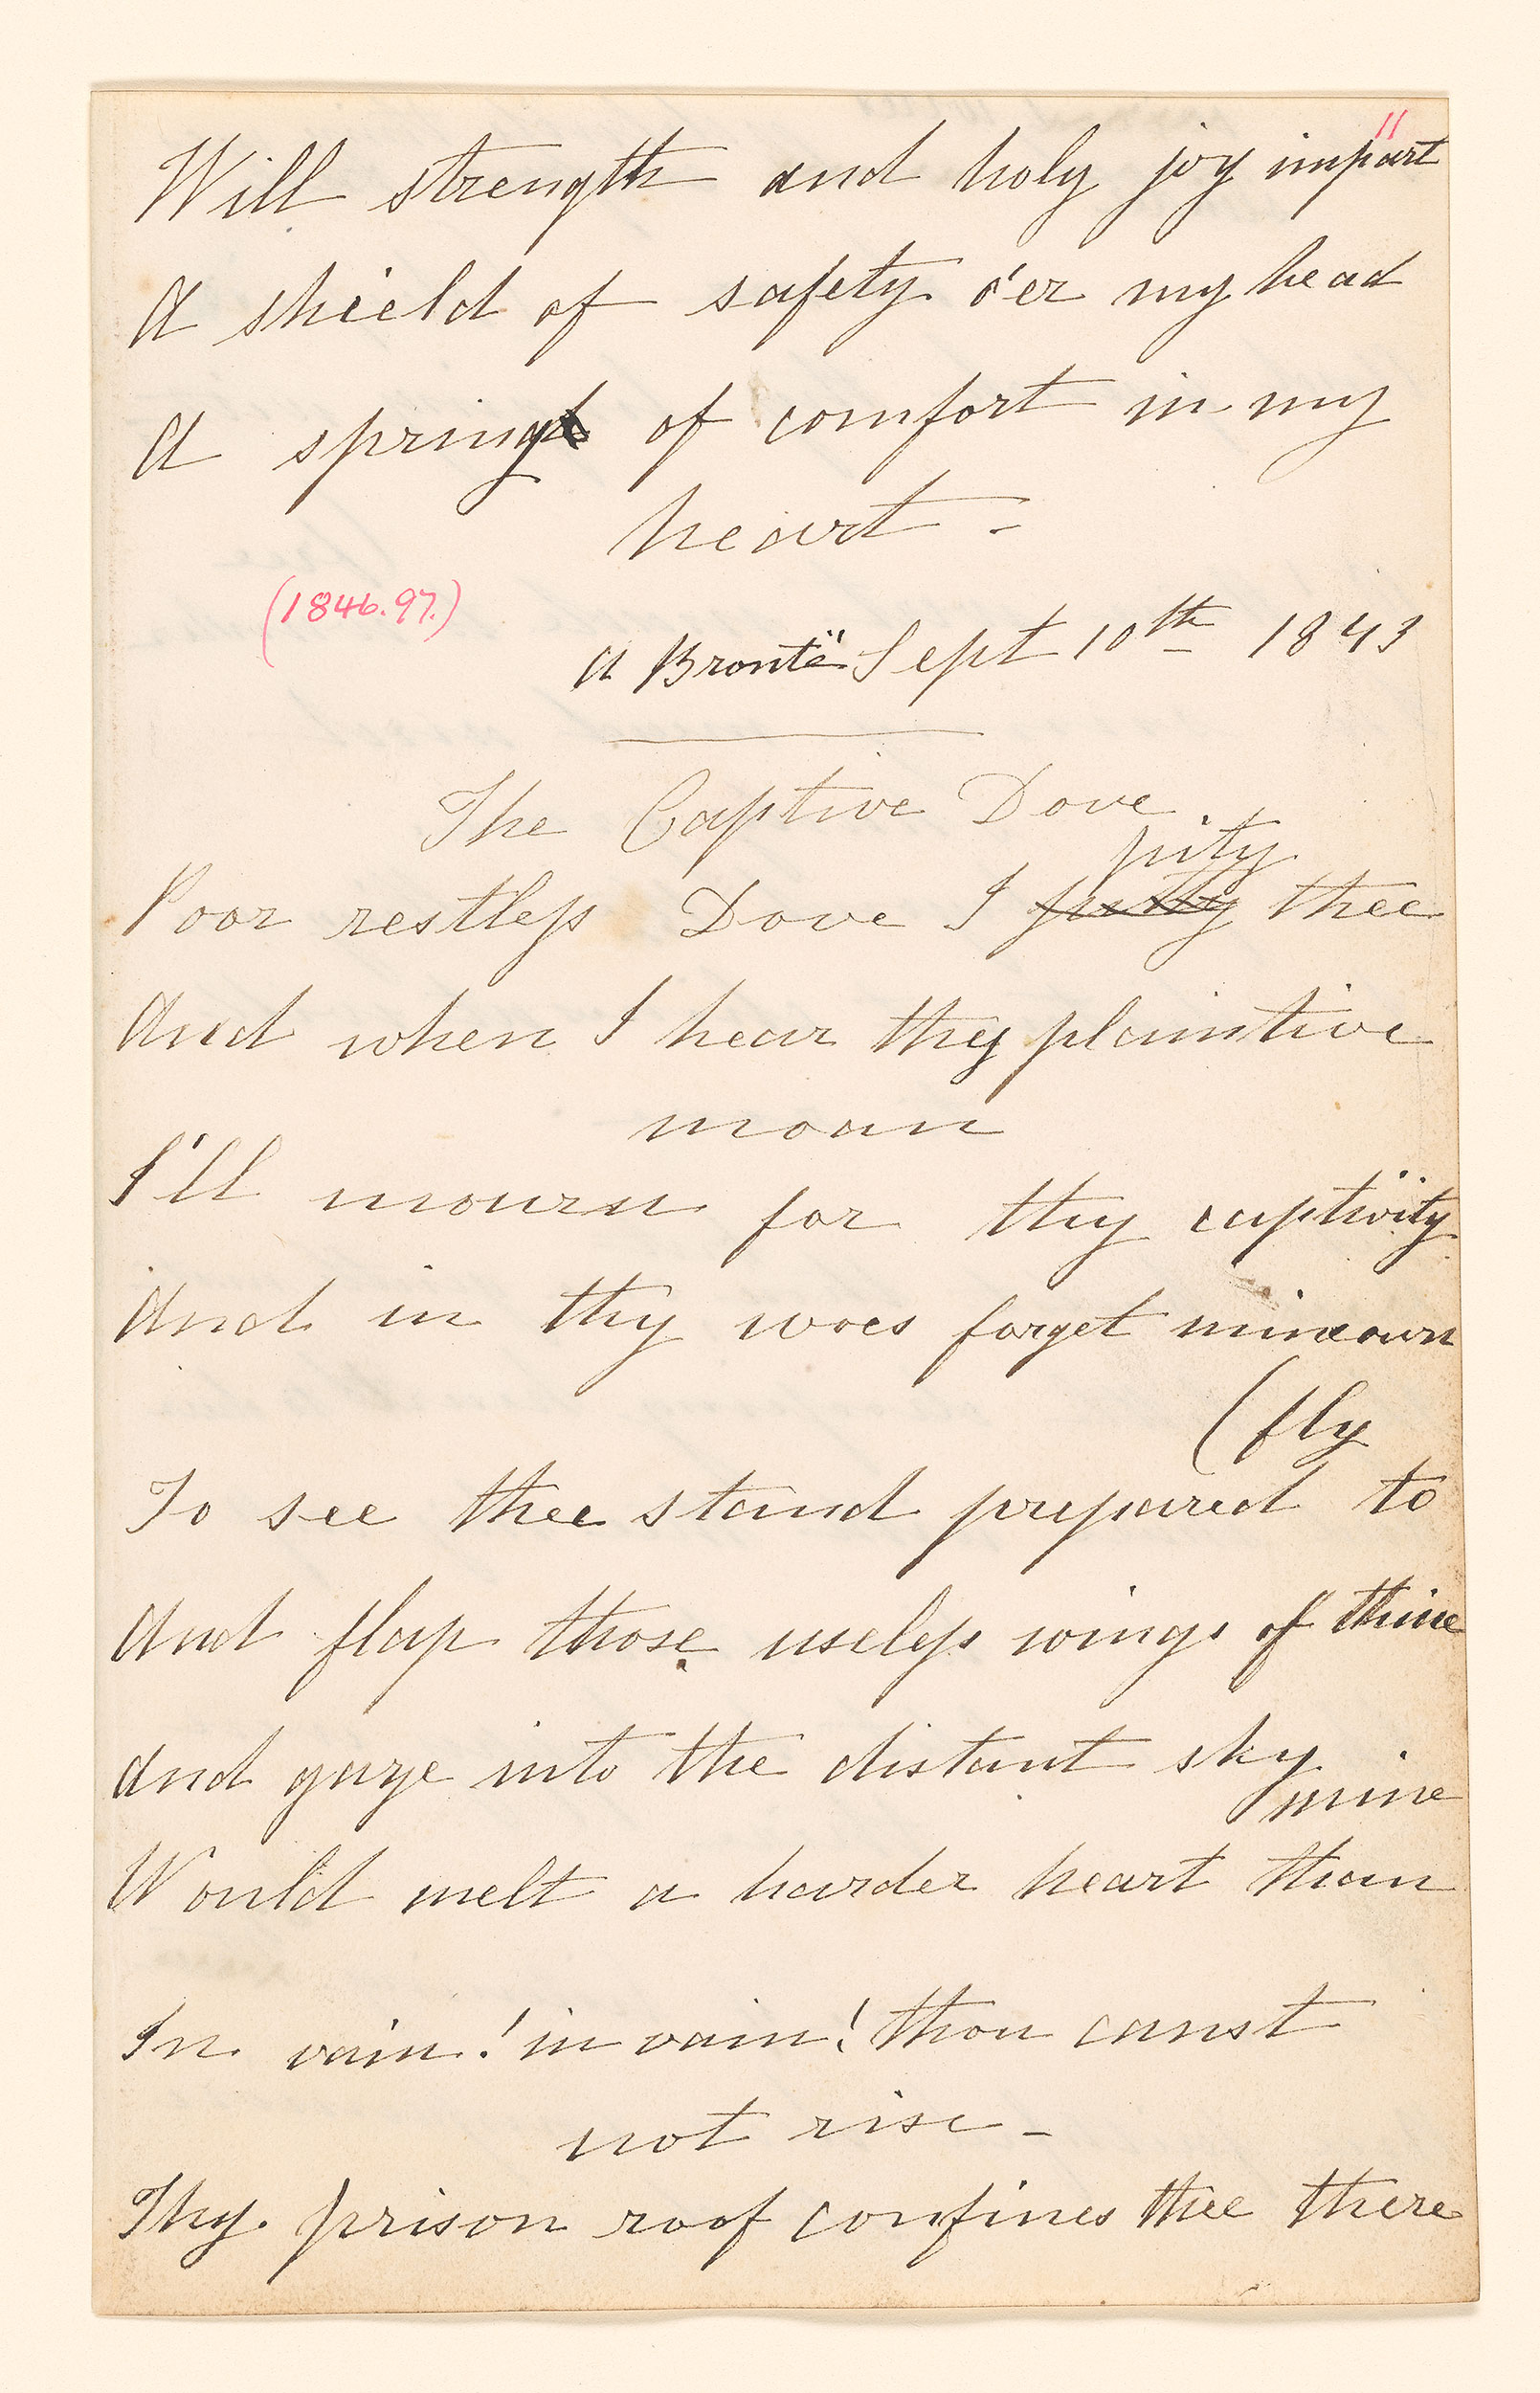 11
Will strength and holy joy impart
A shield of safety o'er my head
A spring of comfort in my
heart -
(1846.97.)
A Brontë Sept 10th 1843
The Captive Dove
pity
Poor restless Dove I pitty thee
And when I hear thy plaintive
moan
I'll mourn for thy captivity
And in thy woes forget mine own
(fly
To see thee stand prepared to
And flap those useless wings of thine
And gaze into the distant sky
mine
Would melt a harder heart than
In vain! in vain! thou canst
not rise -
Thy prison roof confines thee there